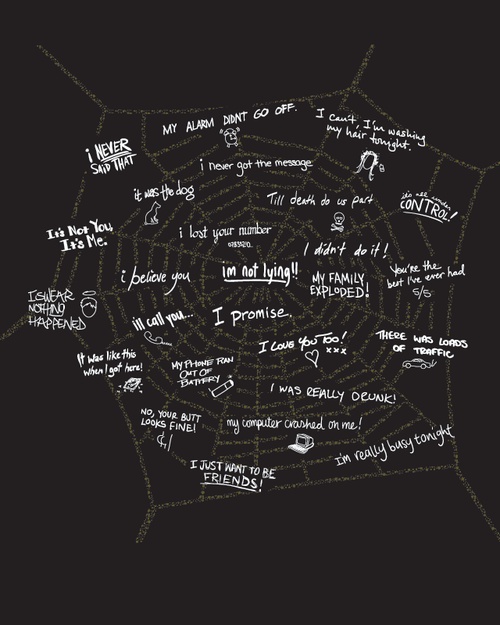 MY ALARM DIDNT GO OFF.
I can't, I'm washing
my hair tonight.
i NEVER
SAID THAT
i never got the message
it was the dog
Till death do us part
it's all under
CONTROL!
It's Not You,
It's Me.
i lost your number
I didn't do it!
i believe you
im not lying!!
MY FAMILY
EXPLODED!
You're the
best I've ever had
5/5
I SWEAR
NOTHING
HAPPENED
ill call you...
I promise.
I LOVE YOU TOO!
xxx
THERE WAS LOADS
OF TRAFFIC
It was like this
when I got here!
MY PHONE RAN
OUT OF
BATTERY
I WAS REALLY DRUNK!
NO, YOUR BUTT
LOOKS FINE!
my computer crashed on me!
I'm really busy tonight
I JUST WANT TO BE
FRIENDS!